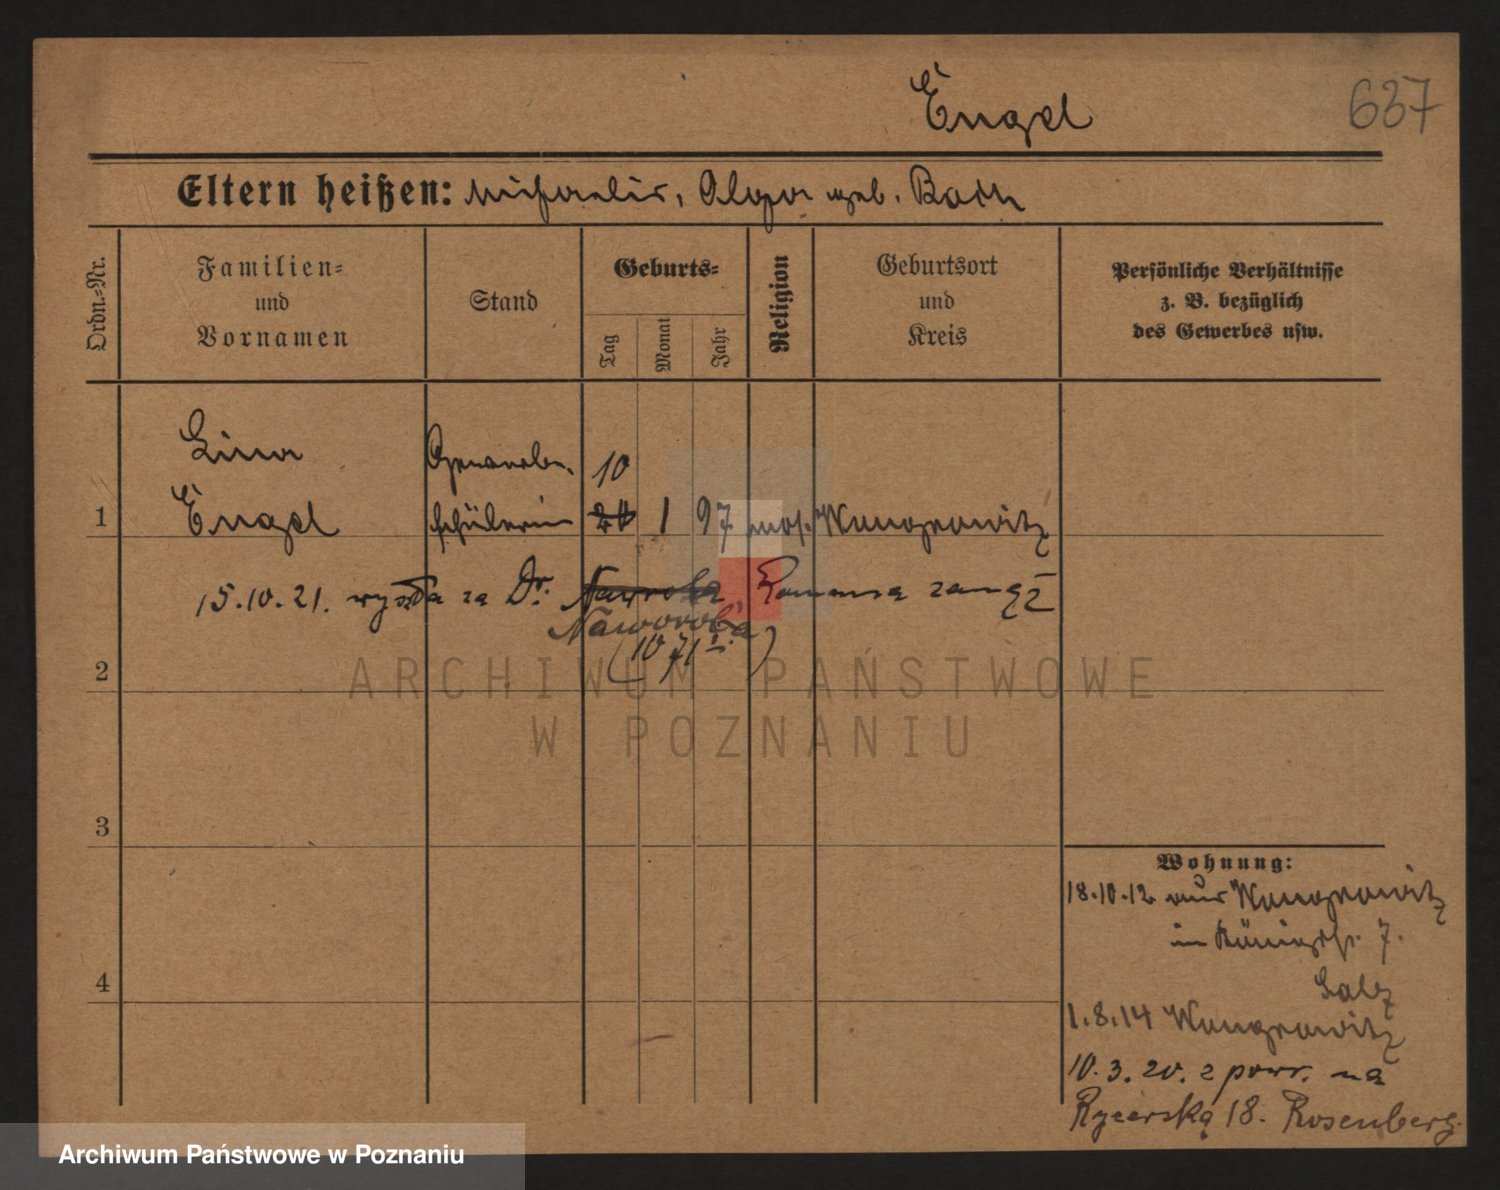 Engel
637
Eltern heißen: Michaelis, Olga geb. Bath
Ordn.-Nr.
Familien-
und
Vornamen
Stand
Geburts-
Tag
Monat
Jahr
Religion
Geburtsort
und
Kreis
Persönliche Verhältnisse
z. B. bezüglich
des Gewerbes usw.
Lina
Engel
schülerin
10
1 97 mos. Wongrowitz
1
15.10.21. wyszła za Dr. Nawroka Romana zamąż
Naworoka
(10/71)
2
3
4
Wohnung:
18.10.12 aus Wongrowitz
in Königstr. 7.
Salz
1.8.14 Wongrowitz
10.3.20. z powr. na
Rycerską 18. Rosenberg.
ARCHIWUM PAŃSTWOWE
W POZNANIU
Archiwum Państwowe w Poznaniu